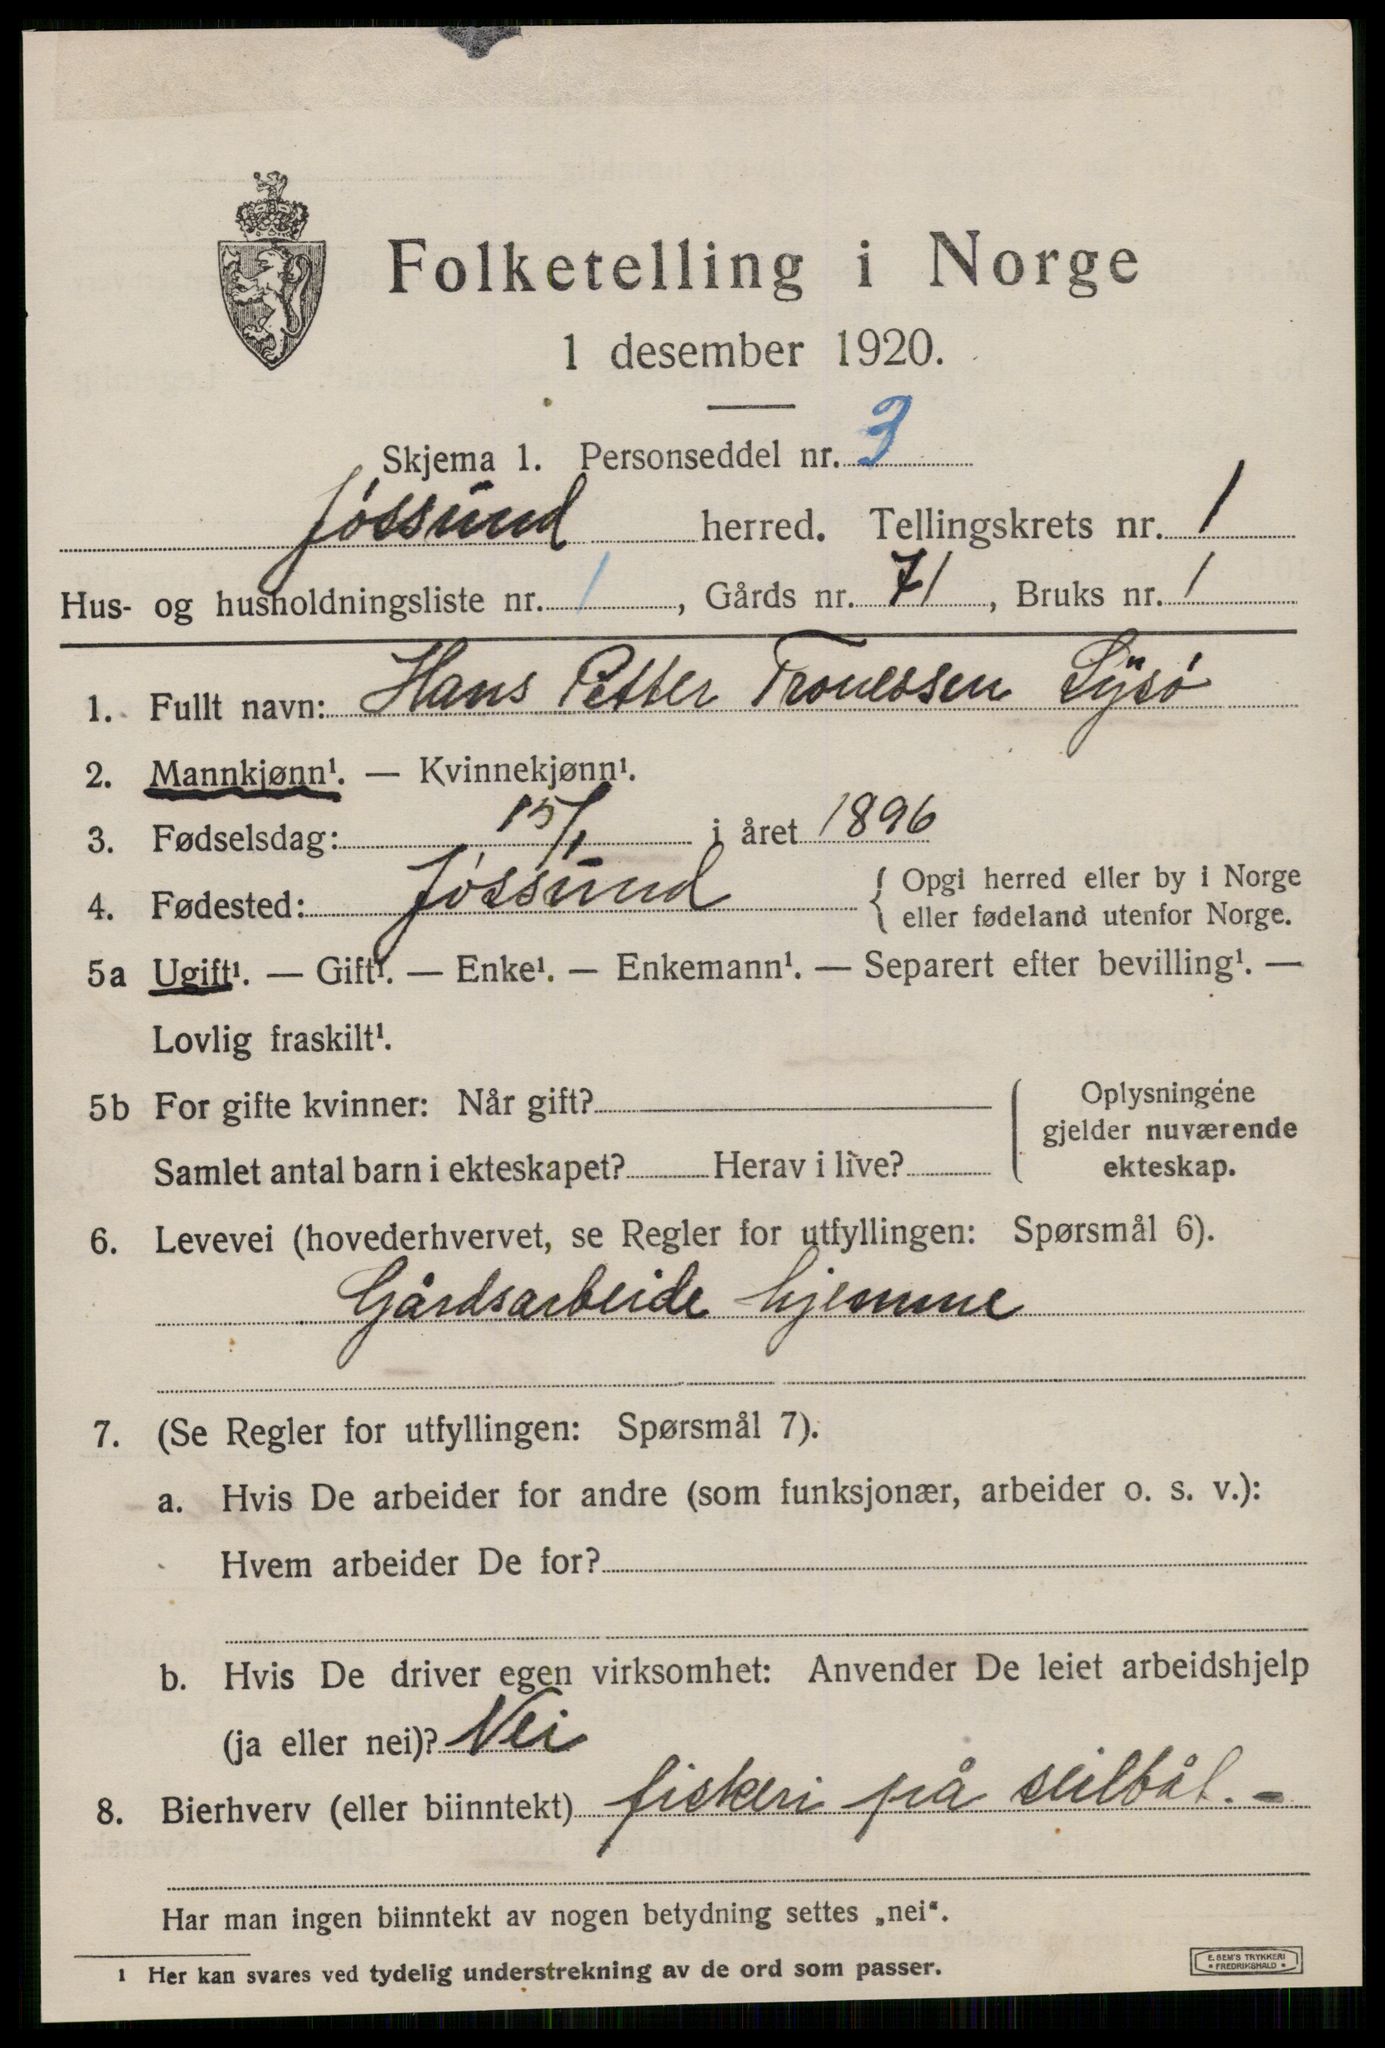 Folketelling i Norge
1 desember 1920.
Skjema 1. Personseddel nr. 3
Jössund herred. Tellingskrets nr. 1
Hus- og husholdningsliste nr. 1, Gårds nr. 71, Bruks nr. 1
1. Fullt navn: Hans Petter Lysö
2. Mannkjønn¹. — Kvinnekjønn¹.
3. Fødselsdag: 15/1 i året 1896
4. Fødested: Jössund { Opgi herred eller by i Norge
eller fødeland utenfor Norge.
5a Ugift¹. — Gift¹. — Enke¹. — Enkemann¹. — Separert efter bevilling¹. —
Lovlig fraskilt¹.
5b For gifte kvinner: Når gift?
Samlet antal barn i ekteskapet? Herav i live?
Oplysningene
gjelder nuværende
ekteskap.
6. Levevei (hovederhvervet, se Regler for utfyllingen: Spørsmål 6).
Gårdsarbeide hjemme
7. (Se Regler for utfyllingen: Spørsmål 7).
a. Hvis De arbeider for andre (som funksjonær, arbeider o. s. v.):
Hvem arbeider De for?
b. Hvis De driver egen virksomhet: Anvender De leiet arbeidshjelp
(ja eller nei)? Nei
8. Bierhverv (eller biinntekt) fiskeri på seilbåt. -
Har man ingen biinntekt av nogen betydning settes „nei“.
1 Her kan svares ved tydelig understrekning av de ord som passer.
E. SEM'S TRYKKERI
• FREDRIKSHALD •